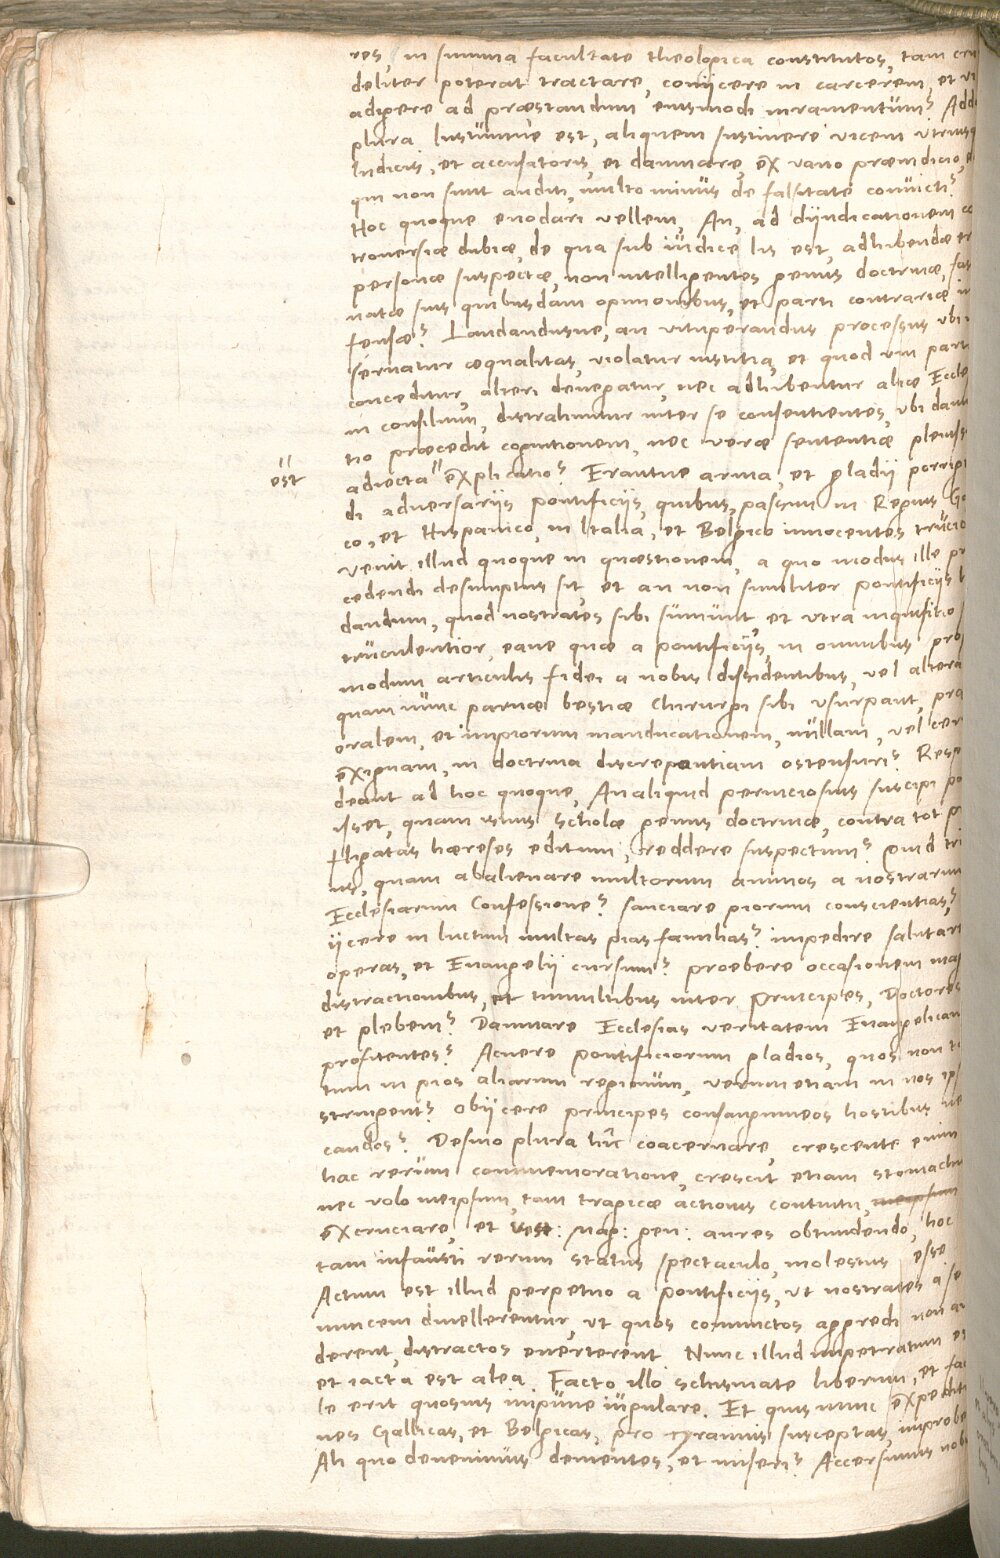 res, in summa facultate theologica constitutos, tam cru
deliter poterat tractare, coniicere in carcerem, et vi
adigere ad præstandum eiusmodi iuramentum? Adde
plura. Iustumne est, aliquem sustinere vicem utrius
Iudicis, et accusatoris, et damnare, ex vano præiudicio, e
qui non sunt auditi, multo minus de falsitate convicti?
Hoc quoque enodari vellem, An, ad diiudicationem co
troversiæ dubiæ, de qua sub iudice lis est, adhibendæ er
personæ suspectæ, non intelligentes genus doctrinæ, fas
natæ suis quibusdam opinionibus, et parti contrariæ in
fensæ? Laudandusne, an vituperandus processus ubi
servatur æqualitas, violatur iustitia, et quod uni parti
conceditur, alteri denegatur, nec adhibentur aliæ Eccle
in consilium, distrahuntur inter se consentientes, ubi dam
tio præcedit cognitionem, nec veræ sententiæ pleniss
est
adiecta" explicatio? Erantne arma, et gladii porrigi
di adversariis pontificiis, quibus, passim in Regnis Ga
co, et Hispanico, in Italia, et Belgico innocentes truci
Venit illud quoque in quæstionem, a quo modus ille pr
cedendi desumptus sit, et an non similiter pontificiis l
dandum, quod nostrates sibi sumunt, et utra inquisitio
truculentior, eane quæ a pontificiis, in omnibus prop
modum articulis fidei a nobis dissidentibus, vel altera
quam nunc parnæ bestiæ Chirurgi sibi usurpant, præ
oralem, et impiorum manducationem, nullam, vel cer
exiguam, in doctrina discrepantiam ostensuri? Resp
deant ad hoc quoque, An aliquid perniciosius suscipi po
isset, quam unius scholæ genus doctrinæ, contra tot p
fligatas hæreses editum, reddere suspectum? Quid tri
us, quam abalienare multorum animos a nostrarum
Ecclesiarum Confessione? sauciare piorum conscientias?
iicere in luctum multas pias familias? impedire salutar
operas, et Evangelii cursum? præbere occasionem ma
distractionibus, et tumultibus inter Principes, Doctores
et plebem? Damnare Ecclesias veritatem Evangelicam
profitentes? Acuere pontificiorum gladios, quos non t
tum in pios aliarum regionum, verum etiam in nos ips
stringent? obiicere principes consanguineos hostibus ne
candos? Desino plura hic coacervare, crescente enim
hac rerum commemoratione, crescit etiam stomachu
nec volo meipsum, tam tragicæ actionis contuitu, meipsum
excruciare, et vest: mag: gen: aures obtundendo, hoc
tam infausti rerum status spectaculo, molestus esse
Actum est illud perpetuo a pontificiis, ut nostrates a se
invicem divellerentur, ut quos coniunctos aggredi non au
derent, distractos everterent. Nunc illud impetratum e
et iacta est alea. Facto illo schismate liberum, et fac
le erit quosvis impune iugulare. Et quis nunc expediti
nes Gallicas, et Belgicas, pro tyrannis susceptas, improbe
Ah quo devenimus dementes, et miseri? Accersimus nob